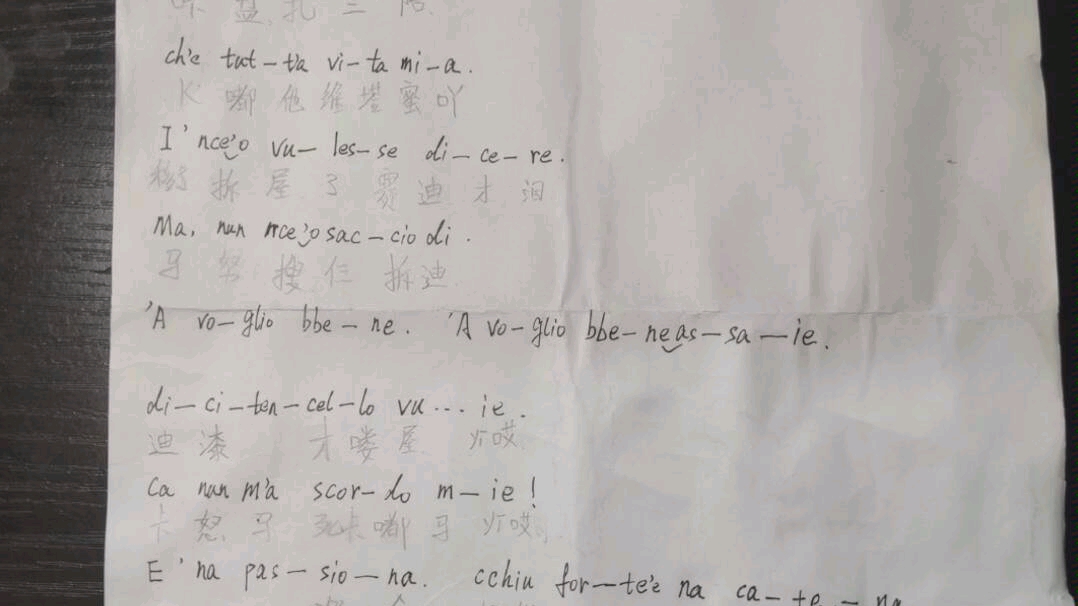 ch'e tut-t'a vi-ta mi-a.
K 嘟 他 维 塔 蜜 吖
I' nce'o vu-les-se di-ce-re.
拆 屋 了 迪 才 泪
Ma, nun nce'o sac-cio di.
马 努 搜 仨 拆 迪
'A vo-glio bbe-ne. 'A vo-glio bbe-ne as-sa-ie.
di-ci-ten-cel-lo vu...ie.
迪 漆 才 喽 屋 哎
Ca nun m'a scor-do m-ie!
卡 怒 马 死卡 嘟 马 哎
E 'na pas-sio-na. cchiu for-te'e na ca-te-na